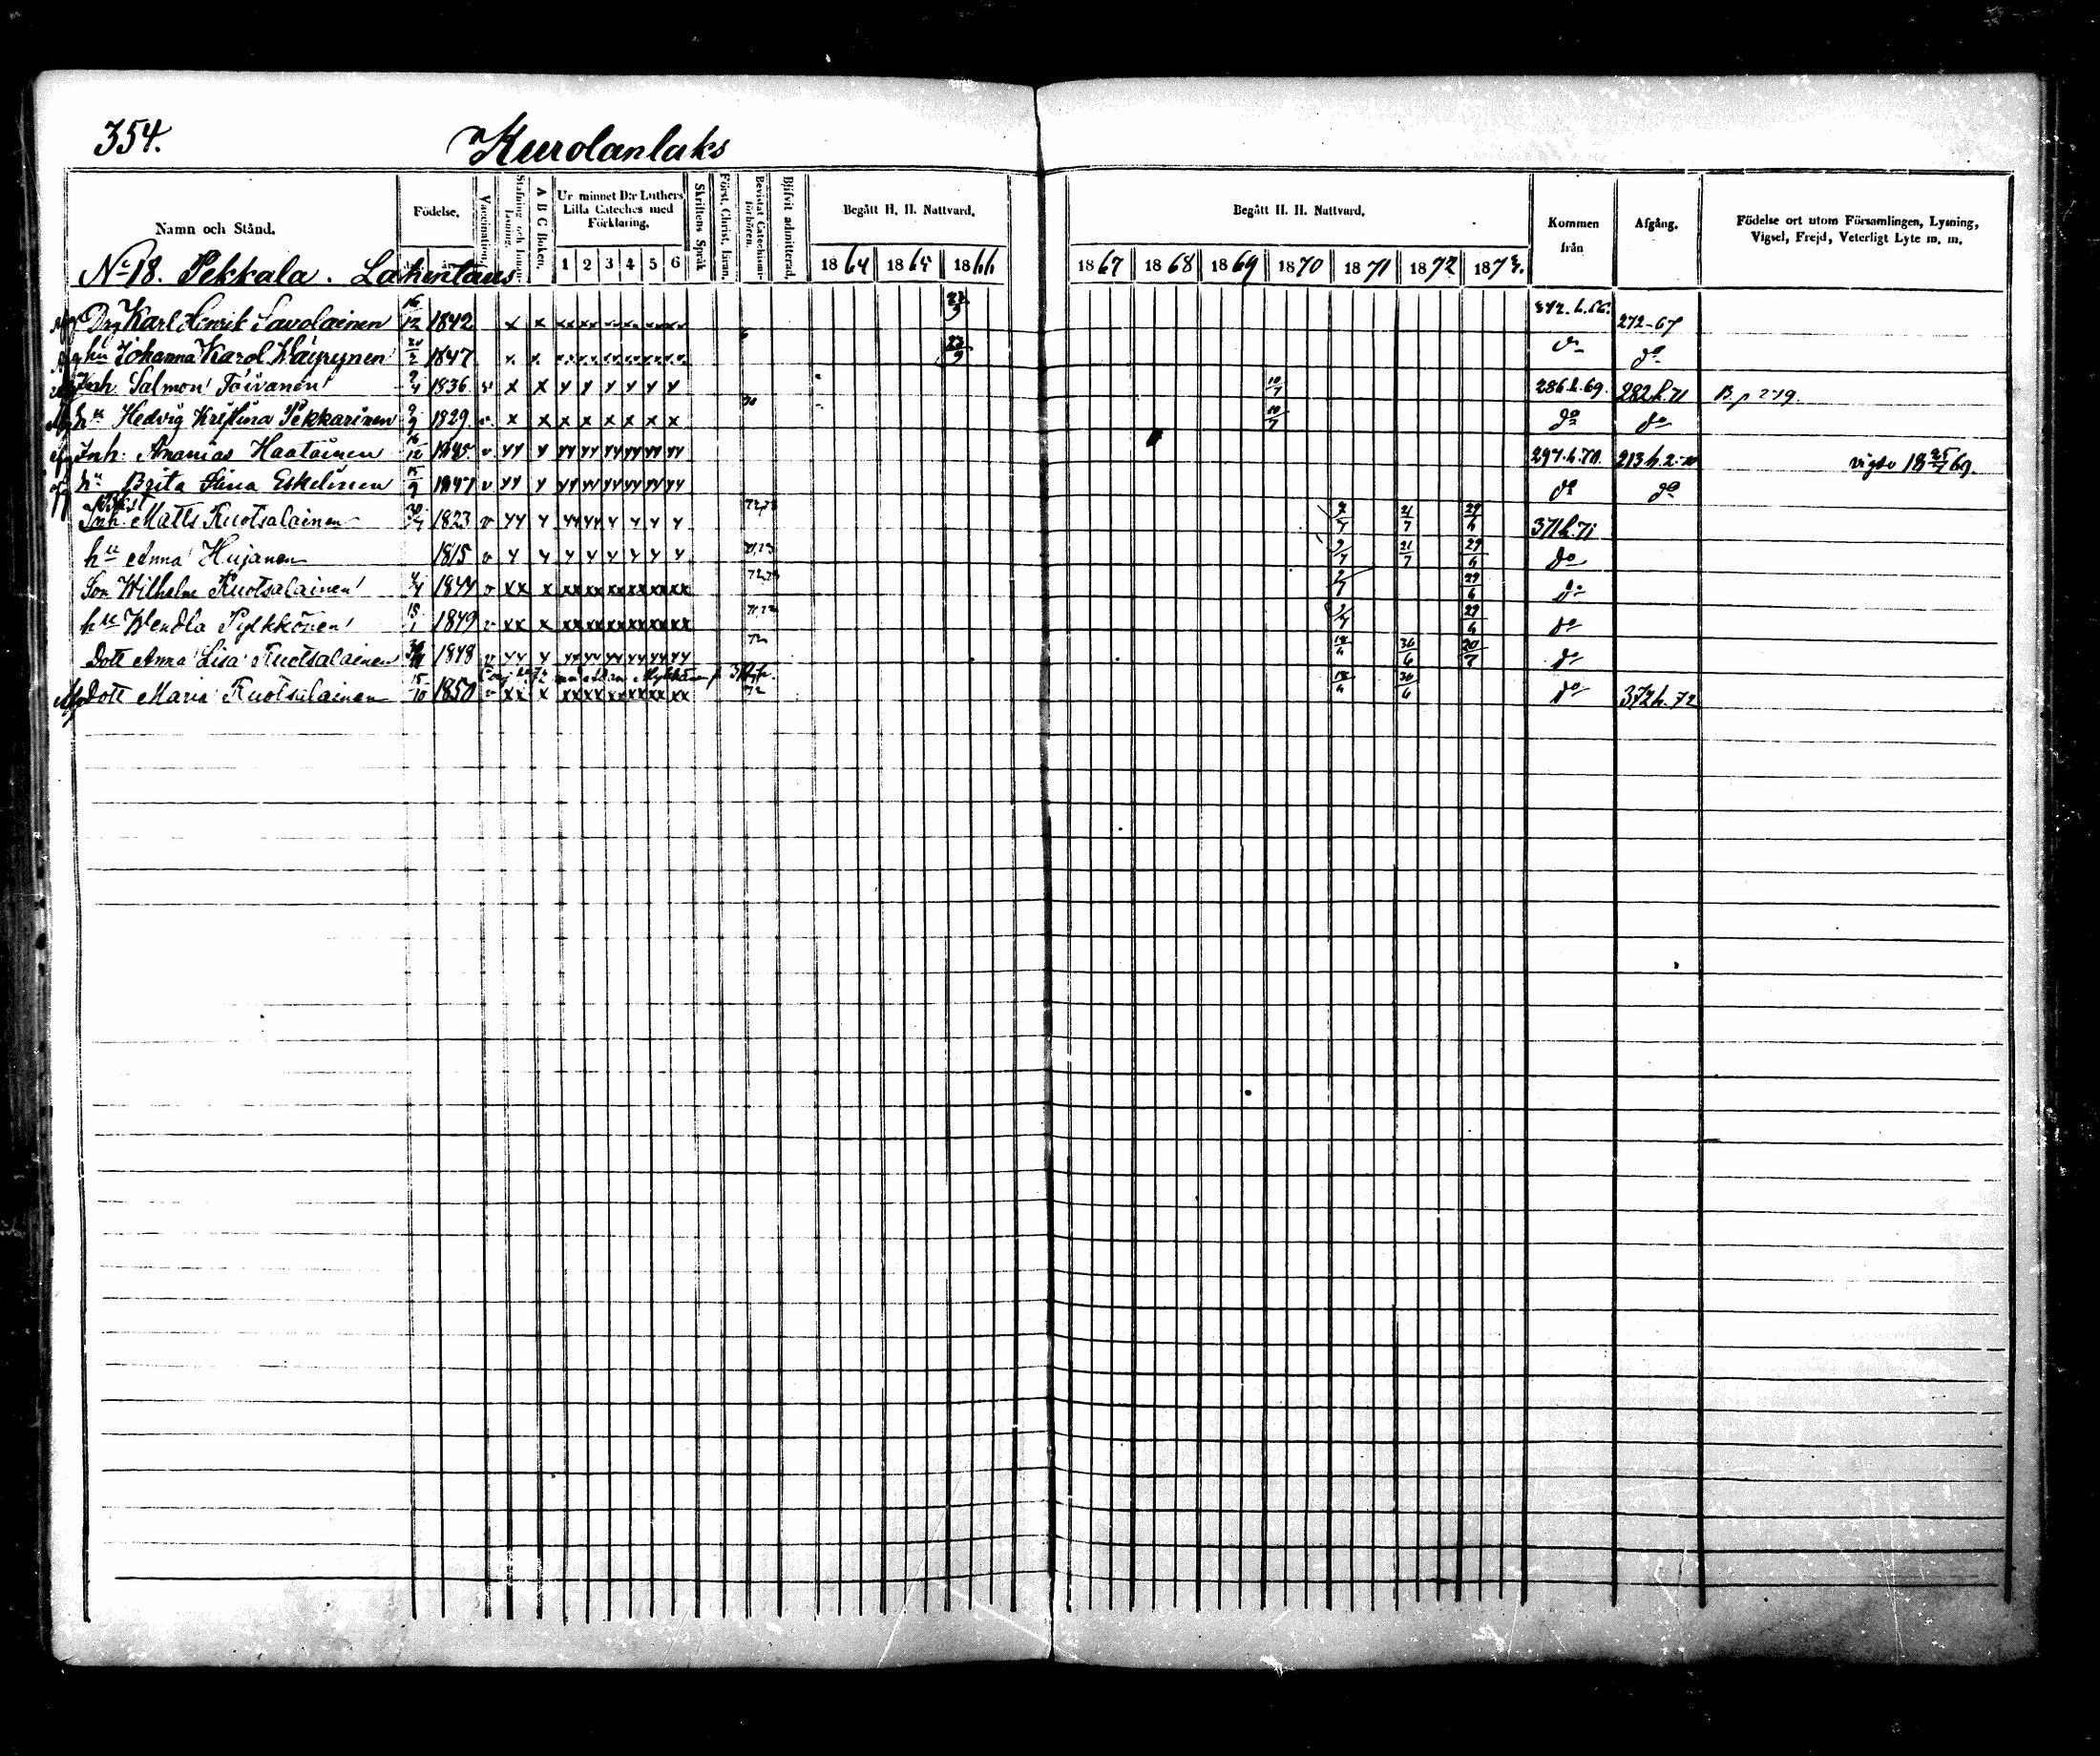 354.
Kurolanlaks
Namn och Stånd. Födelse. Vaccination. Stafning och Innan läsning. A B C Boken. Ur minnet D:r Luthers Lilla Cateches med Förklaring. 1 2 3 4 5 6 Skriftens Språk Först. Christ. lärau. Bevistat Catechismi-förhören. Blifvit admitterad. Begått H. H. Nattvard. 1864 1865 1866
Begått H. H. Nattvard. 1867 1868 1869 1870 1871 1872 1873. Kommen från Afgång. Födelse ort utom Församlingen, Lysning, Vigsel, Frejd, Veterligt Lyte m. m.
No 18. Pekkala. Lahentaus
Drg Karl Henrik Savolainen 16/12 1842 x x xx xx xx xx xx xx 23/9 342.h.66. 272-67
hu Johanna Karol. Väyrynen 20/2 1847 x x xx xx xx xx xx xx 23/9 do do
Inh. Salmon Toivanen 2/4 1836 v x x y y y y y y 10/7 286 h. 69. 282 h. 71 B p 279.
hu Hedvig Kristina Pekkarinen 2/9 1829 v x x x x x x x x 70 10/7 do do
Inh. Ananias Haatainen 16/12 1845 v yy y yy yy yy yy yy yy 297.h.70. vigde 18 25/7 69.
hu Brita Stina Eskelinen 15/9 1847 v yy y yy yy yy yy yy yy do do
Inh. Matts Ruotsalainen 1823 v yy y yy yy y y y y 72,73 2/7 21/7 29/6 371 h. 71
hu Anna Hujanen 1815 v y y y y y y y y 2/7 21/7 29/6 do
Son Wilhelm Ruotsalainen 1844 v xx x xx xx xx xx xx xx 29/6 do
hu Wendla Pylkkönen 15/1 1849 v xx x xx xx xx xx xx xx 2/7 29/6 do
Dott Anna Lisa Ruotsalainen 1848 v yy y yy yy yy yy yy yy 72 18/6 30/6 20/7 do
Dott Maria Ruotsalainen 15/10 1850 v xx x xx xx xx xx xx xx 72 18/6 30/6 do 372 h. 72